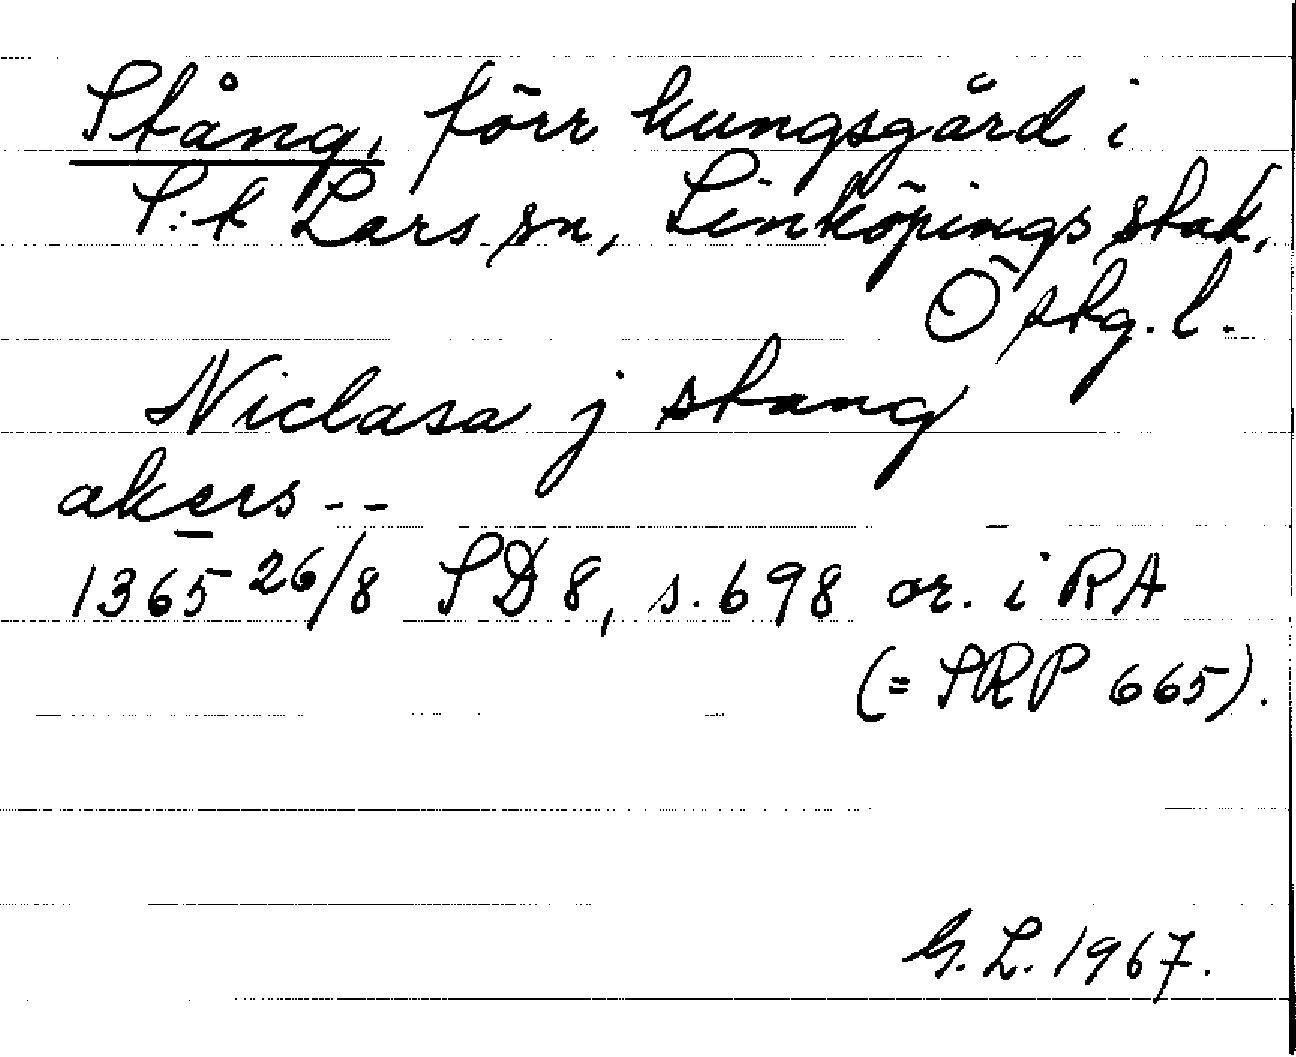 Stång, förr kungsgård i
S:t Lars sn, Linköpings stad,
Östg. l.
Niclasa j stang
akers--
1365 26/8 SD 8, s. 698 or. i RA
(= SRP 665).
G. L. 1967.